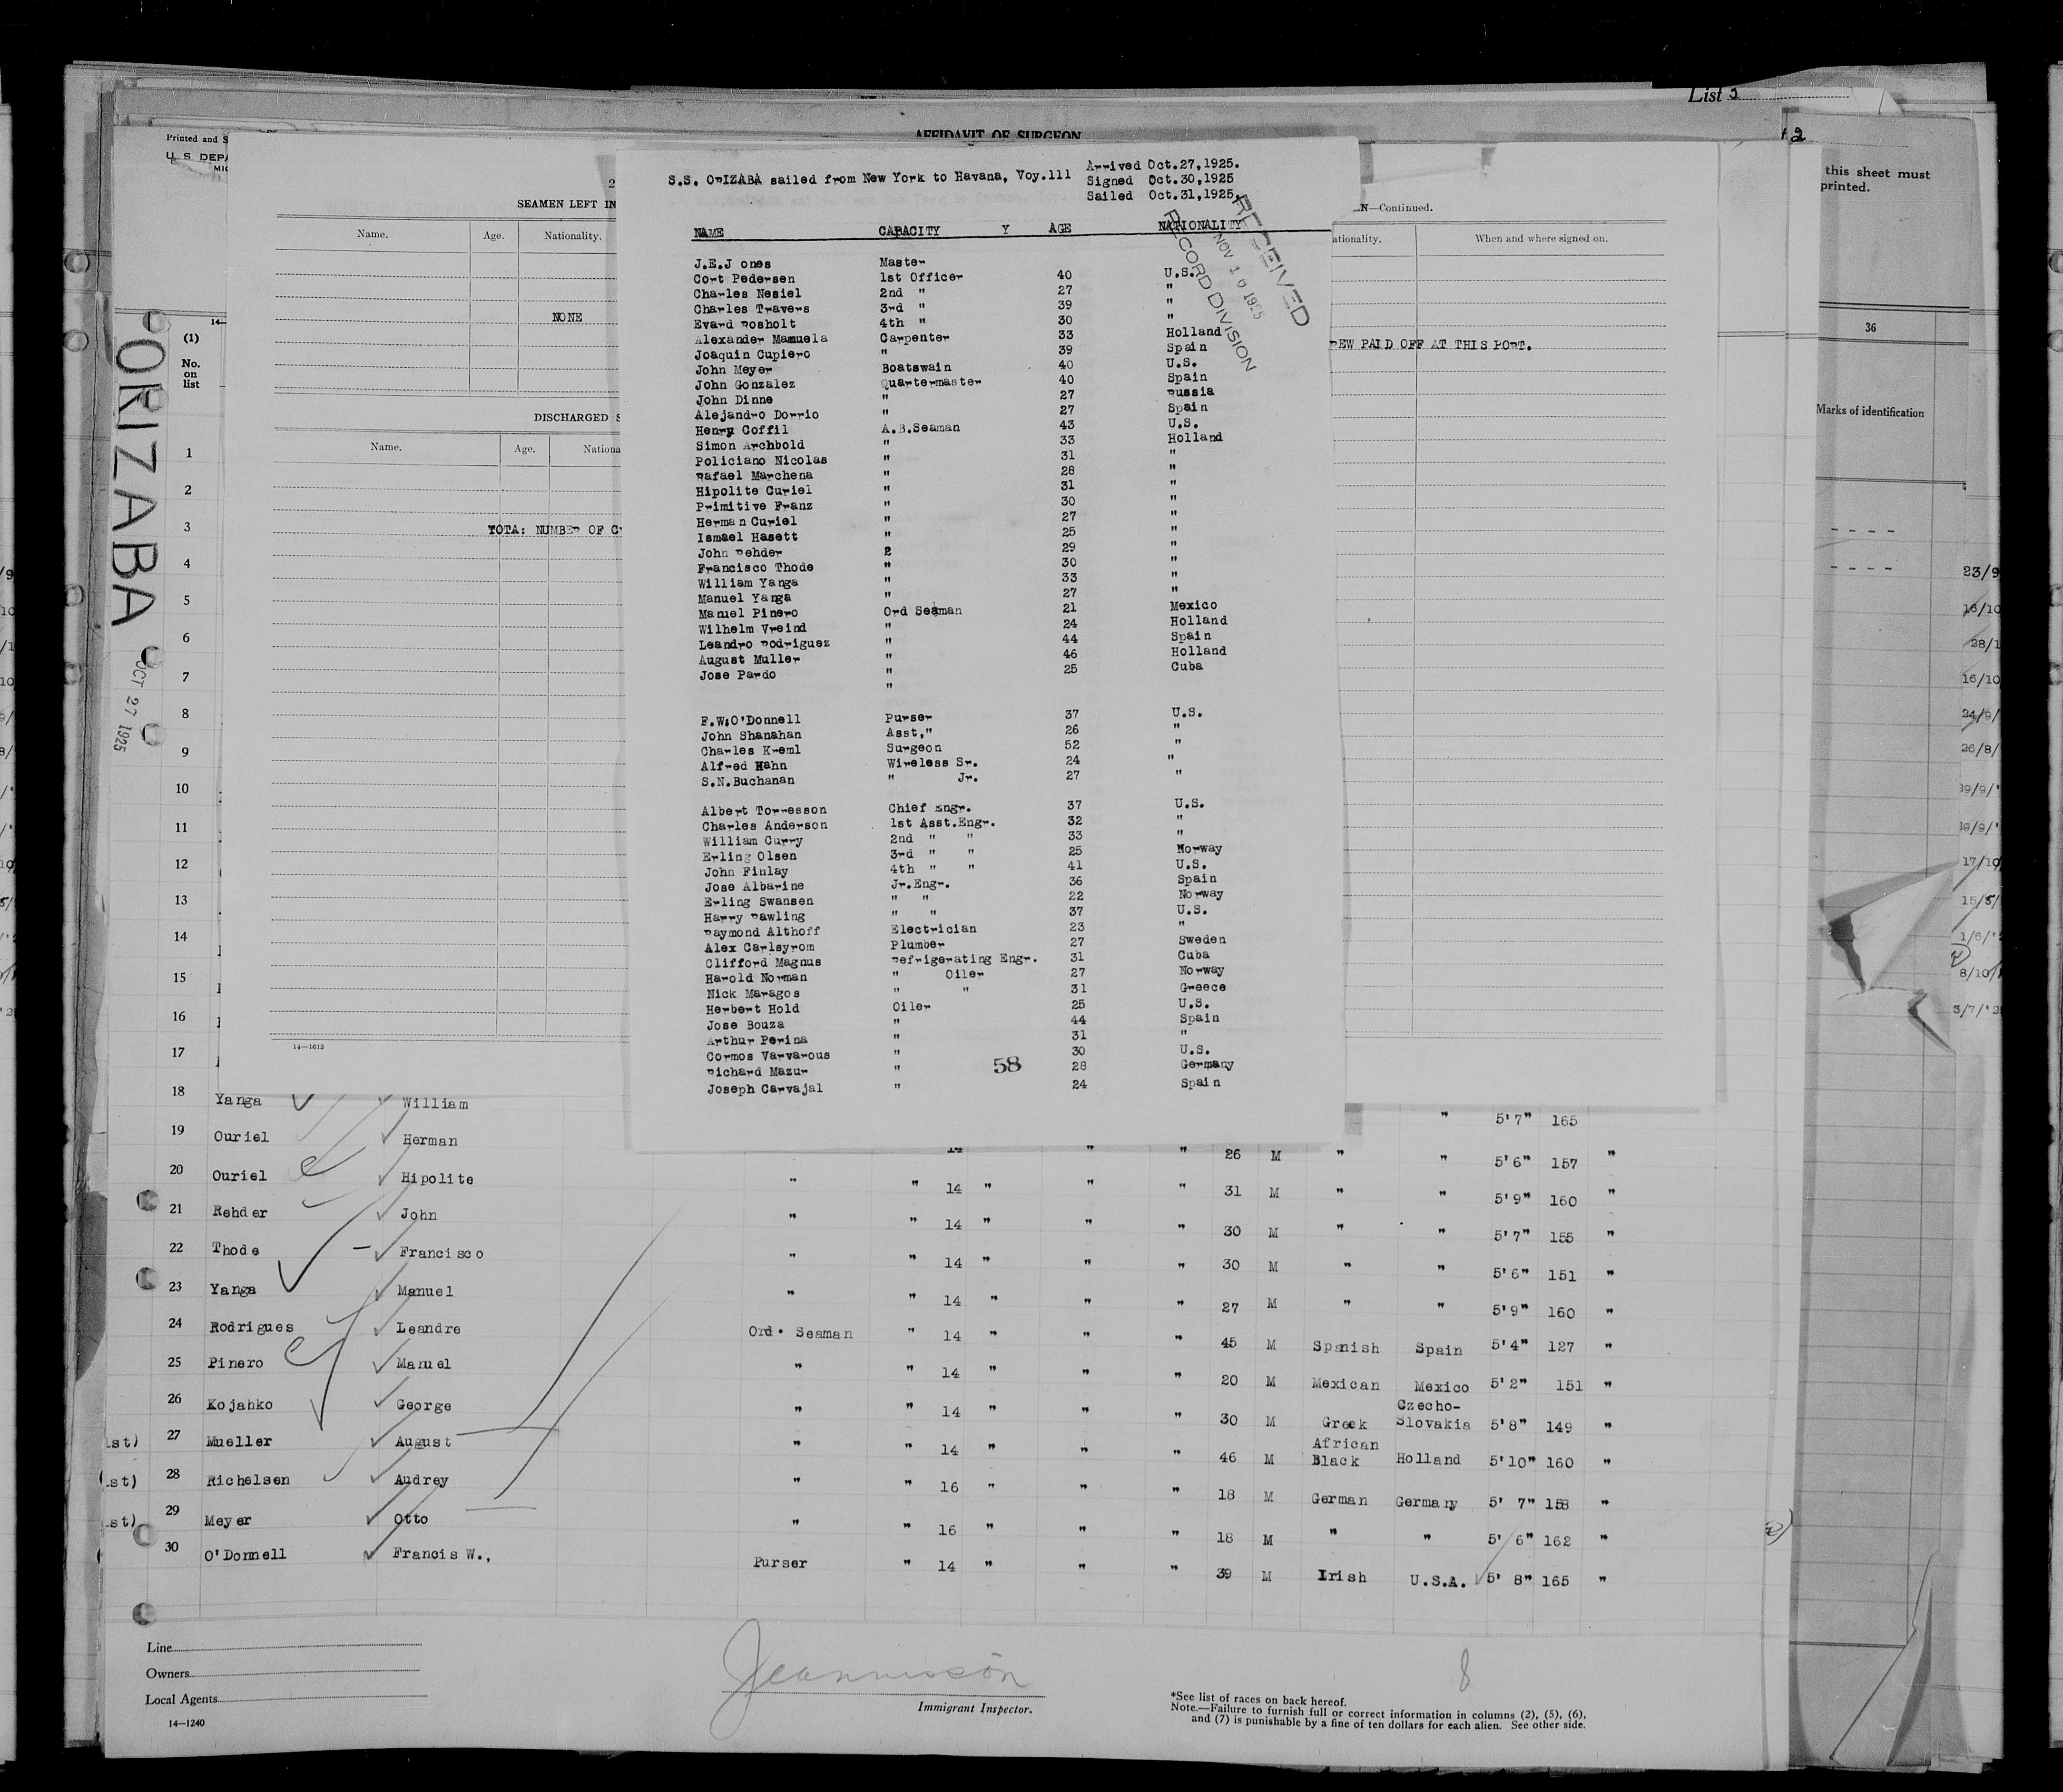 List 3
AFFIDAVIT OF SURGEON
2
Printed and S
U. S. DEPA
this sheet must
printed.
S.S. ORIZABA sailed from New York to Havana, Voy.111
Arrived Oct.27,1925.
Signed Oct.30,1925
Sailed Oct.31,1925.
RECEIVED
NOV 10 1925
RECORD DIVISION
NAME CAPACITY Y AGE NATIONALITY
J.E.J ones Master
Cort Pedersen 1st Officer 40 U.S.
Charles Nesiel 2nd " 27 "
Charles Travers 3rd " 39 "
Evard Rosholt 4th " 30 "
Alexander Manuela Carpenter 33 Holland
Joaquin Cupiero " 39 Spain
John Meyer Boatswain 40 U.S.
John Gonzalez Quartermaster 40 Spain
John Dinne " 27 Russia
Alejandro Dorrio " 27 Spain
Henry Coffil A.B.Seaman 43 U.S.
Simon Archbold " 33 Holland
Policiano Nicolas " 31 "
Rafael Marchena " 28 "
Hipolite Curiel " 31 "
Primitive Franz " 30 "
Herman Curiel " 27 "
Ismael Hasett " 25 "
John Rehder 2 29 "
Francisco Thode " 30 "
William Yanga " 33 "
Manuel Yanga " 27 "
Manuel Pinero Ord Seaman 21 Mexico
Wilhelm Vreind " 24 Holland
Leandro Rodriguez " 44 Spain
August Muller " 46 Holland
Jose Pardo " 25 Cuba
"
F.W.O'Donnell Purser 37 U.S.
John Shanahan Asst," 26 "
Charles Kreml Surgeon 52 "
Alfred Hahn Wireless Sr. 24 "
S.N.Buchanan " Jr. 27 "
Albert Torresson Chief Engr. 37 U.S.
Charles Anderson 1st Asst.Engr. 32 "
William Curry 2nd " " 33 "
Erling Olsen 3rd " " 25 Norway
John Finlay 4th " " 41 U.S.
Jose Albarine Jr.Engr. 36 Spain
Erling Swansen " " 22 Norway
Harry Rawling " " 37 U.S.
Raymond Althoff Electrician 23 "
Alex Carlsyrom Plumber 27 Sweden
Clifford Magnus Refrigerating Engr. 31 Cuba
Harold Norman " Oiler 27 Norway
Nick Maragos " " 31 Greece
Herbert Hold Oiler 25 U.S.
Jose Bouza " 44 Spain
Arthur Perina " 31 "
Cormos Varvarous " 30 U.S.
Richard Mazur " 28 Germany
Joseph Carvajal " 24 Spain
58
SEAMEN LEFT IN
Name. Age. Nationality.
NONE
DISCHARGED S
Name. Age. Nationa
TOTA: NUMBER OF C
14—1612
N—Continued.
ationality. When and where signed on.
REW PAID OFF AT THIS PORT.
36
Marks of identification
23/9
16/10
28/1
16/10
24/9/
26/8/
17/10
15/5/
1/6/'
8/10/
3/7/'2
ORIZABA
OCT 27 1925
(1)
No.
on
list
1
2
3
4
5
6
7
8
9
10
11
12
13
14
15
16
17
18 Yanga William " 5'7" 165
19 Ouriel Herman 14 " " 26 M " " 5'6" 157 "
20 Ouriel Hipolite " " 14 " " " 31 M " " 5'9" 160 "
21 Rehder John " " 14 " " " 30 M " " 5'7" 155 "
22 Thode Francisco " " 14 " " " 30 M " " 5'6" 151 "
23 Yanga Manuel " " 14 " " " 27 M " " 5'9" 160 "
24 Rodrigues Leandre Ord. Seaman " 14 " " 45 M Spanish Spain 5'4" 127 "
25 Pinero Manuel " " 14 " " 20 M Mexican Mexico 5'2" 151 "
26 Kojahko George " " 14 " " 30 M Greek Czecho-Slovakia 5'8" 149 "
27 Mueller August " " 14 " " 46 M African Black Holland 5'10" 160 "
28 Richelsen Audrey " " 16 " " 18 M German Germany 5' 7" 158 "
29 Meyer Otto " " 16 " " 18 M " " 5' 6" 162 "
30 O'Donnell Francis W., Purser " 14 " " 39 M Irish U.S.A. 5' 8" 165 "
Line
Owners
Local Agents
14—1240
Immigrant Inspector.
8
*See list of races on back hereof.
Note.—Failure to furnish full or correct information in columns (2), (5), (6),
and (7) is punishable by a fine of ten dollars for each alien. See other side.